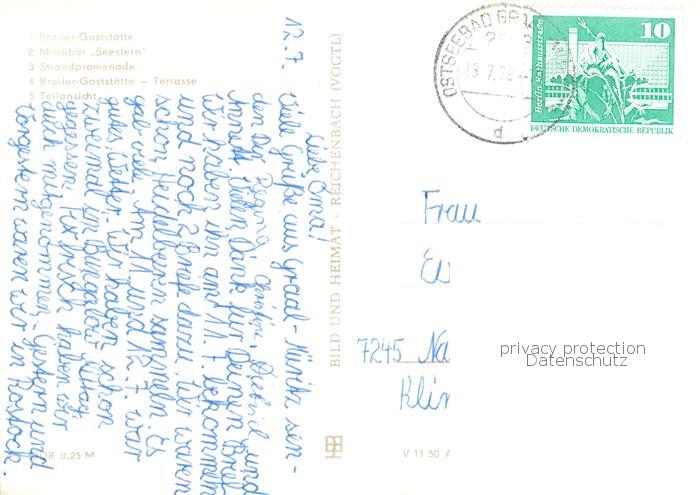 1 Broiler-Gaststätte
2 Milchbar „Seestern"
3 Strandpromenade
4 Broiler-Gaststätte – Terrasse
5 Teilansicht
12.7.
Liebe Oma!
Viele Grüße aus Graal-Müritz sen-
den Dir und
Vielen Dank für Deinen Brief
Wir haben ihn am 11. 7. bekommen
und noch 2 Briefe dazu. Wir waren
schon Heidelbeeren sammeln. Es
gab viel. Am 11. und 12. 7 war
gutes Wetter. Wir haben schon
zweimal im Bungalow Mittag
gegessen. haben wir
auch mitgenommen. Gestern und
Vorgestern waren wir in Rostock.
0,25 M
BILD UND HEIMAT · REICHENBACH (VOGTL)
V 11 50 A
OSTSEEBAD
d
Berlin Rathausstraße
10
DEUTSCHE DEMOKRATISCHE REPUBLIK
Frau
7245 Na
Klin
privacy protection
Datenschutz